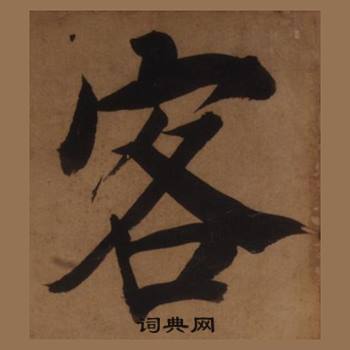 客
词典网